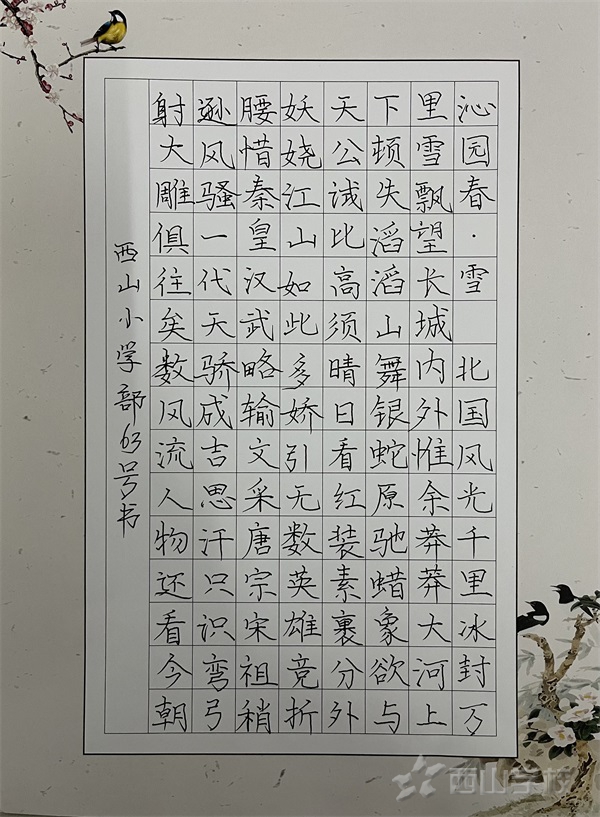 沁园春·雪 北国风光千里冰封万
里雪飘望长城内外惟余莽莽大河上
下顿失滔滔山舞银蛇原驰蜡象欲与
天公试比高须晴日看红装素裹分外
妖娆江山如此多娇引无数英雄竞折
腰惜秦皇汉武略输文采唐宗宋祖稍
逊风骚一代天骄成吉思汗只识弯弓
射大雕俱往矣数风流人物还看今朝
西山小学部63号书
西山学校